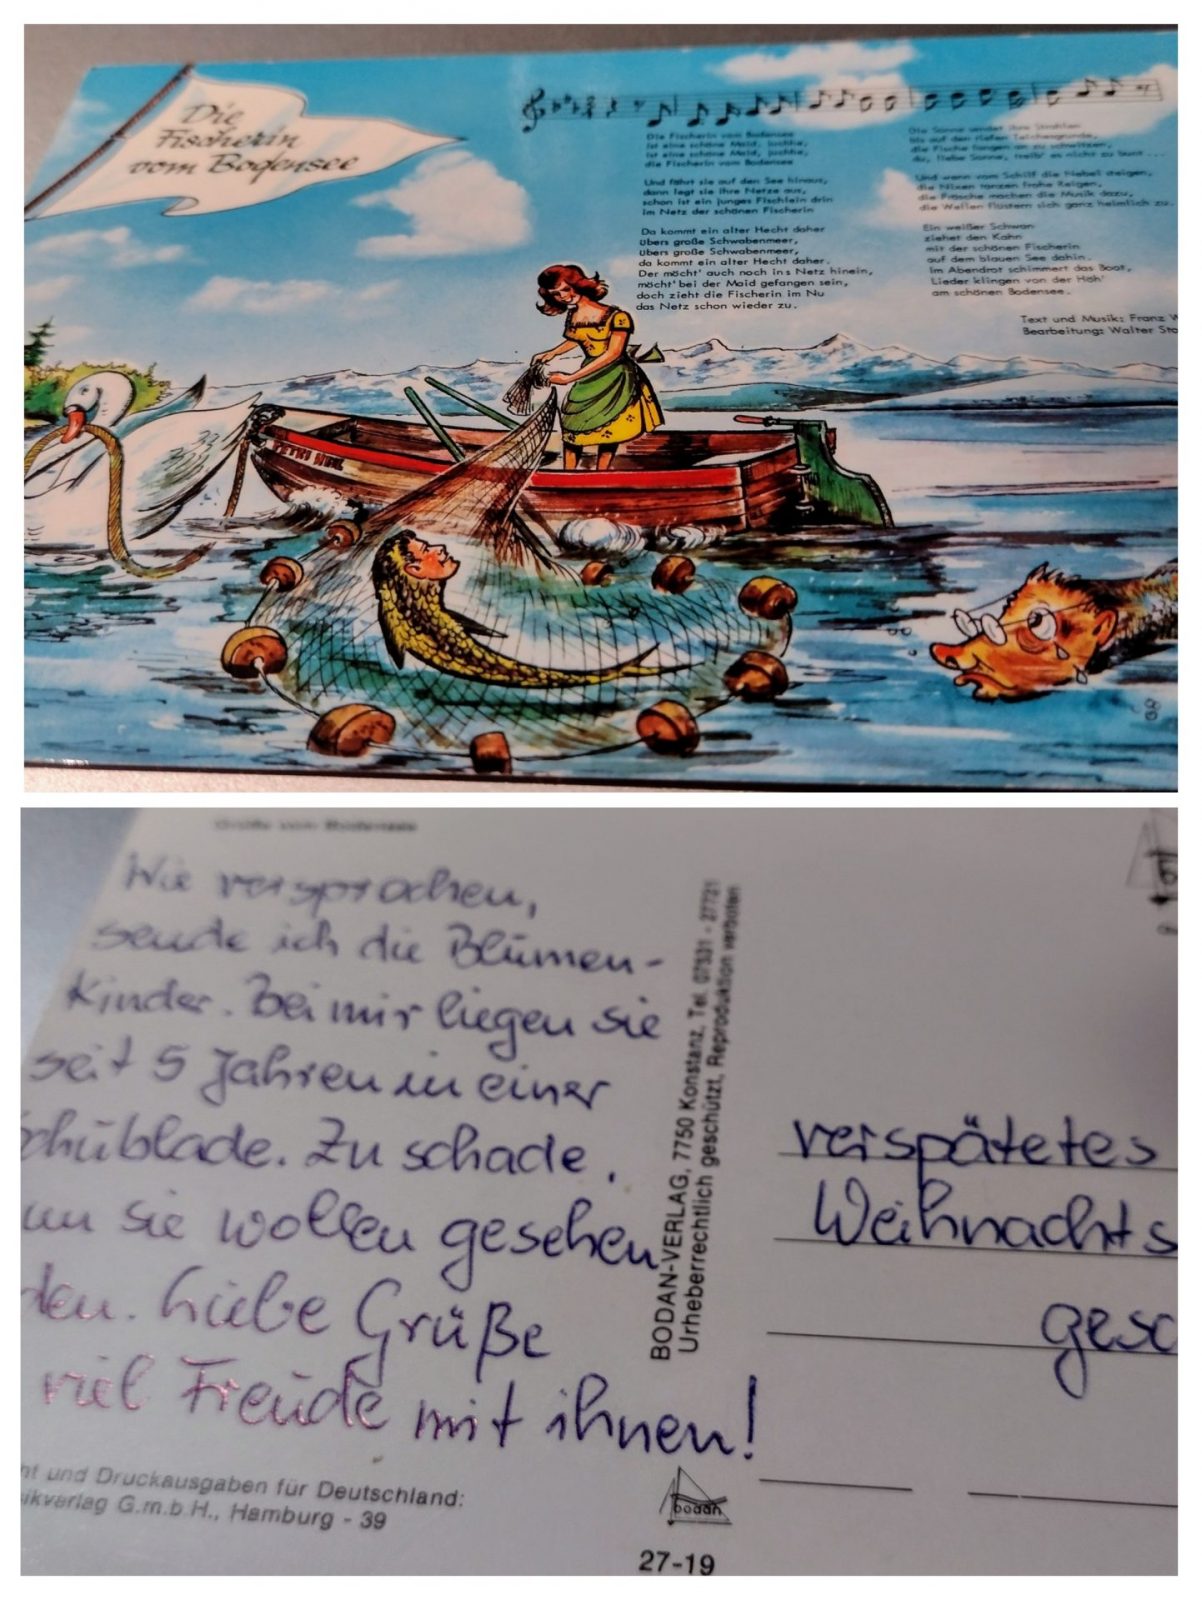 Die
Fischerin
vom Bodensee
Die Fischerin vom Bodensee
ist eine schöne Maid, juchhe,
ist eine schöne Maid, juchhe,
die Fischerin vom Bodensee
Und fährt sie auf den See hinaus,
dann legt sie ihre Netze aus,
schon ist ein junges Fischlein drin
im Netz der schönen Fischerin
Da kommt ein alter Hecht daher
übers große Schwabenmeer,
übers große Schwabenmeer,
da kommt ein alter Hecht daher.
Der möcht' auch noch ins Netz hinein,
möcht' bei der Maid gefangen sein,
doch zieht die Fischerin im Nu
das Netz schon wieder zu.
Die Sonne sendet ihre Strahlen
bis auf den tiefen Teichesgrunde,
die Fische fangen an zu schwitzen,
du, liebe Sonne, treib' es nicht zu bunt...
Und wenn vom Schilf die Nebel steigen,
die Nixen tanzen frohe Reigen,
die Frösche machen die Musik dazu,
die Wellen flüstern sich ganz heimlich zu.
Ein weißer Schwan
ziehet den Kahn
mit der schönen Fischerin
auf dem blauen See dahin.
Im Abendrot schimmert das Boot,
Lieder klingen von der Höh'
am schönen Bodensee.
Text und Musik: Franz W
Bearbeitung: Walter Sto
PETRI HEIL
Grüße vom Bodensee
Wie versprochen,
sende ich die Blumen-
kinder. Bei mir liegen sie
seit 5 Jahren in einer
chublade. Zu schade,
un sie wollen gesehen
den. Liebe Grüße
viel Freude mit ihnen!
BODAN-VERLAG, 7750 Konstanz, Tel. 07531 - 27721
Urheberrechtlich geschützt, Reproduktion verboten
verspätetes
Weihnachts
gesc
ht und Druckausgaben für Deutschland:
ikverlag G.m.b.H., Hamburg - 39
bodan
27-19